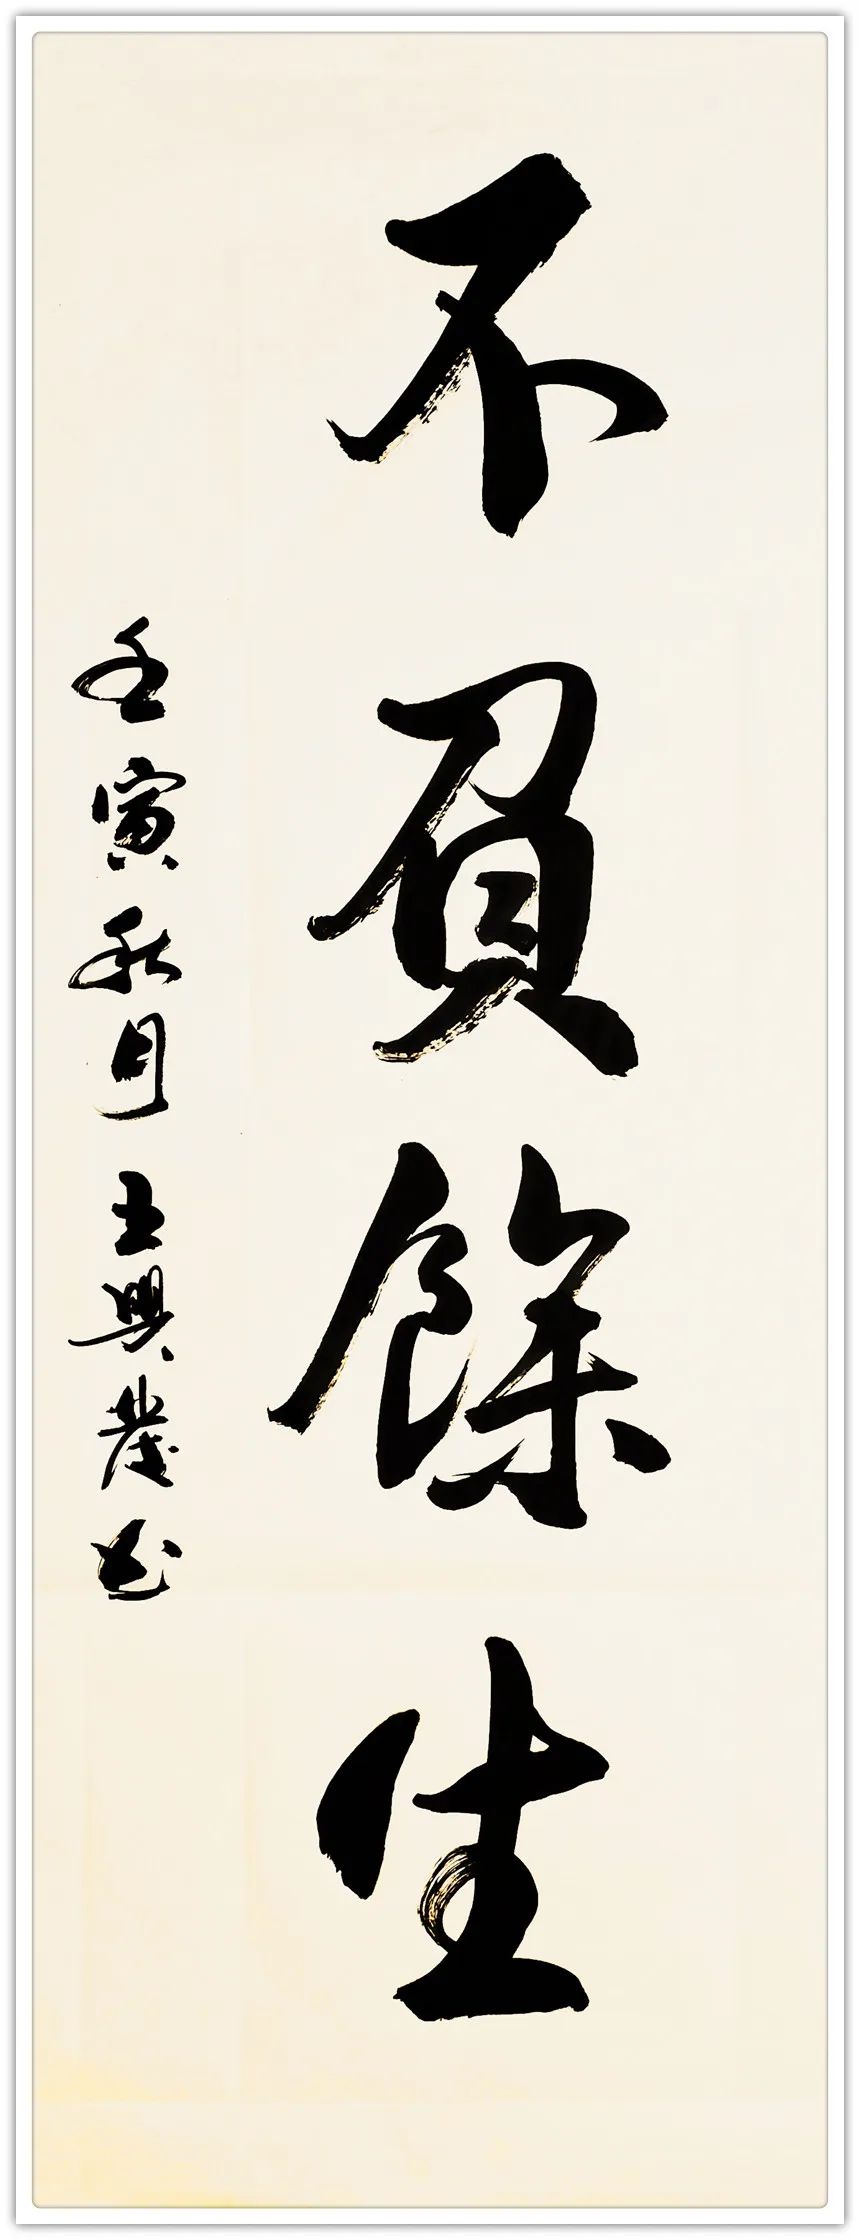 不負餘生
壬寅秋月王興发书